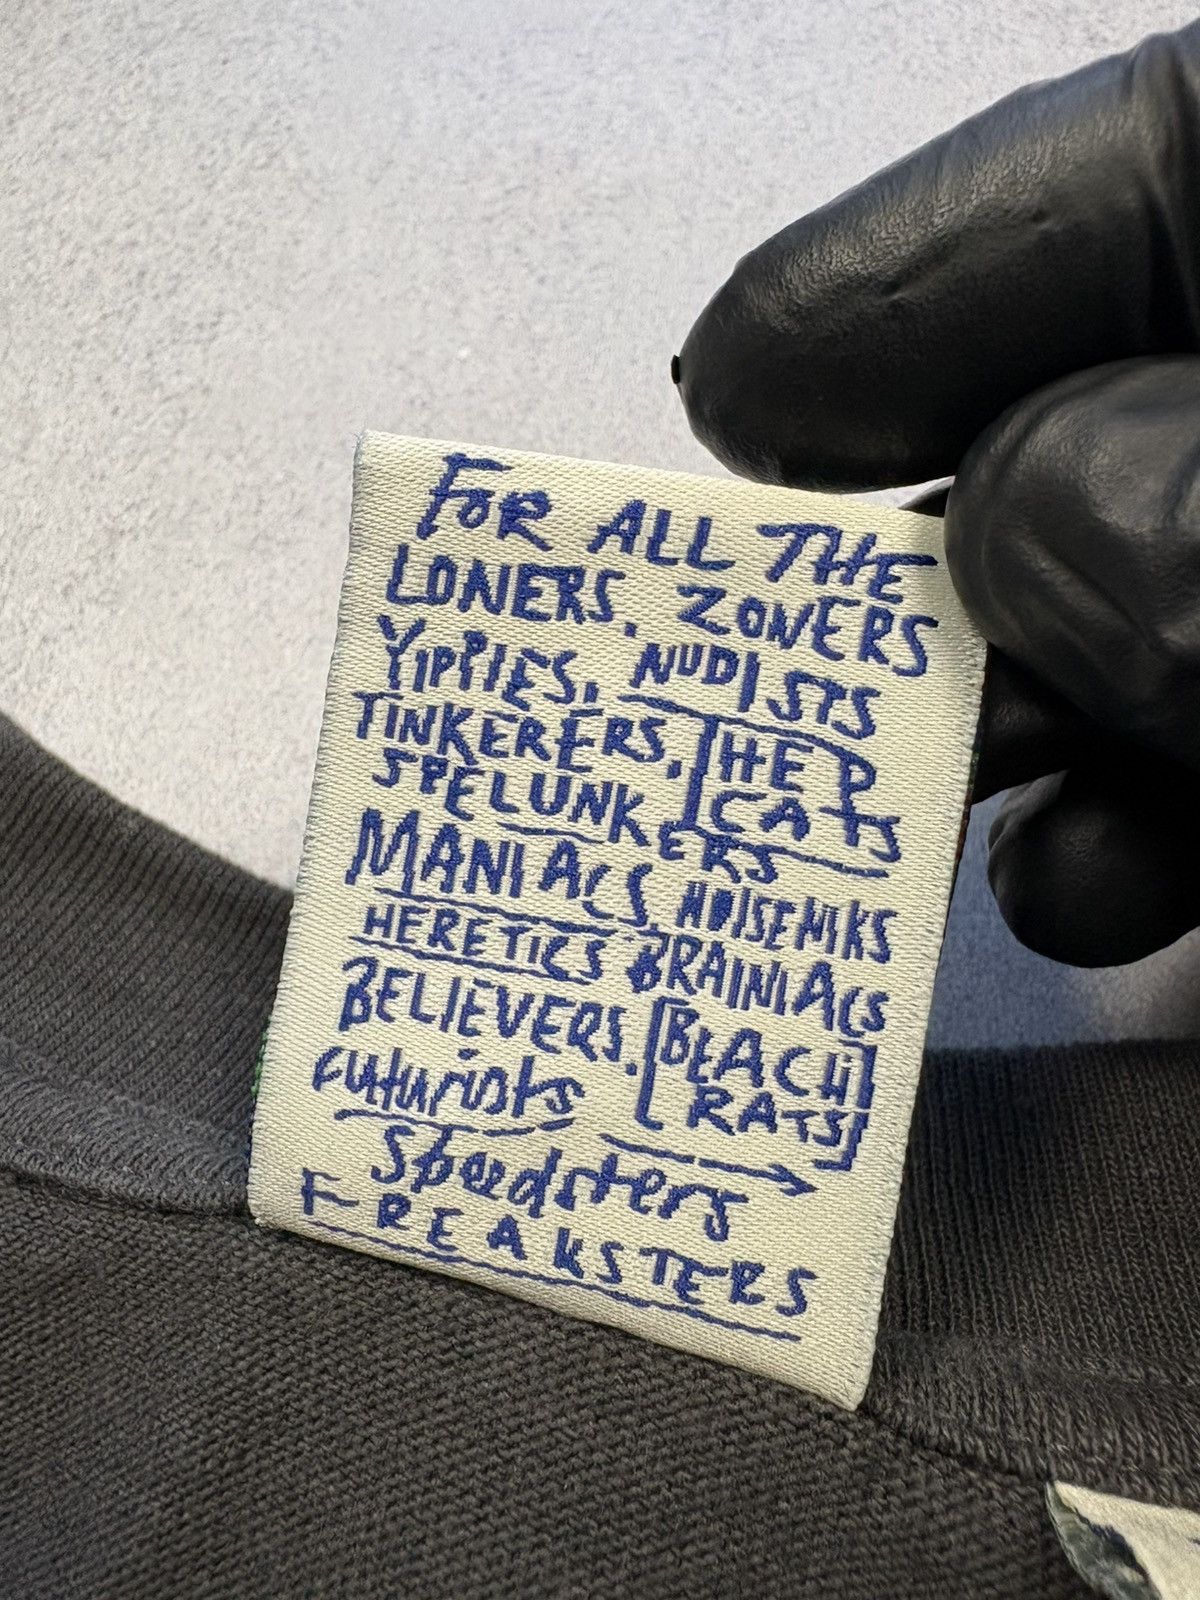 FOR ALL THE
LONERS, ZONERS
YIPPIES, NUDISTS
TINKERERS, [HEP
CATS
SPELUNKERS
MANIACS, NOISENIKS
HERETICS BRAINIACS
BELIEVERS, [BEACH]
RATS]
futurists
Speedsters
FREAKSTERS